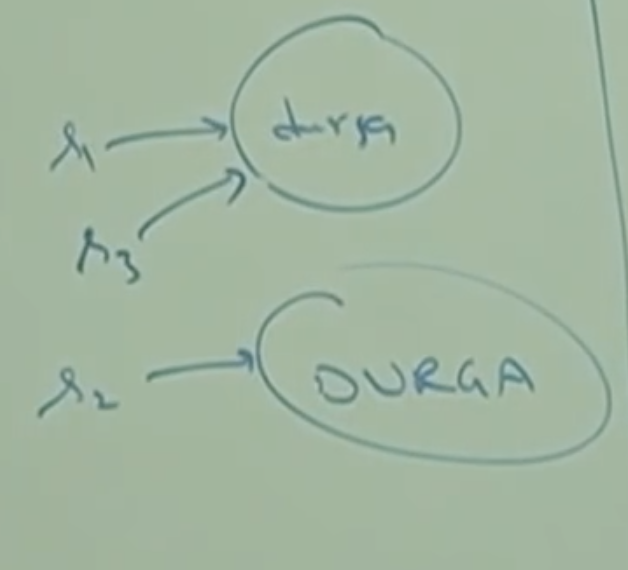 s1 durga
s3
s2 DURGA